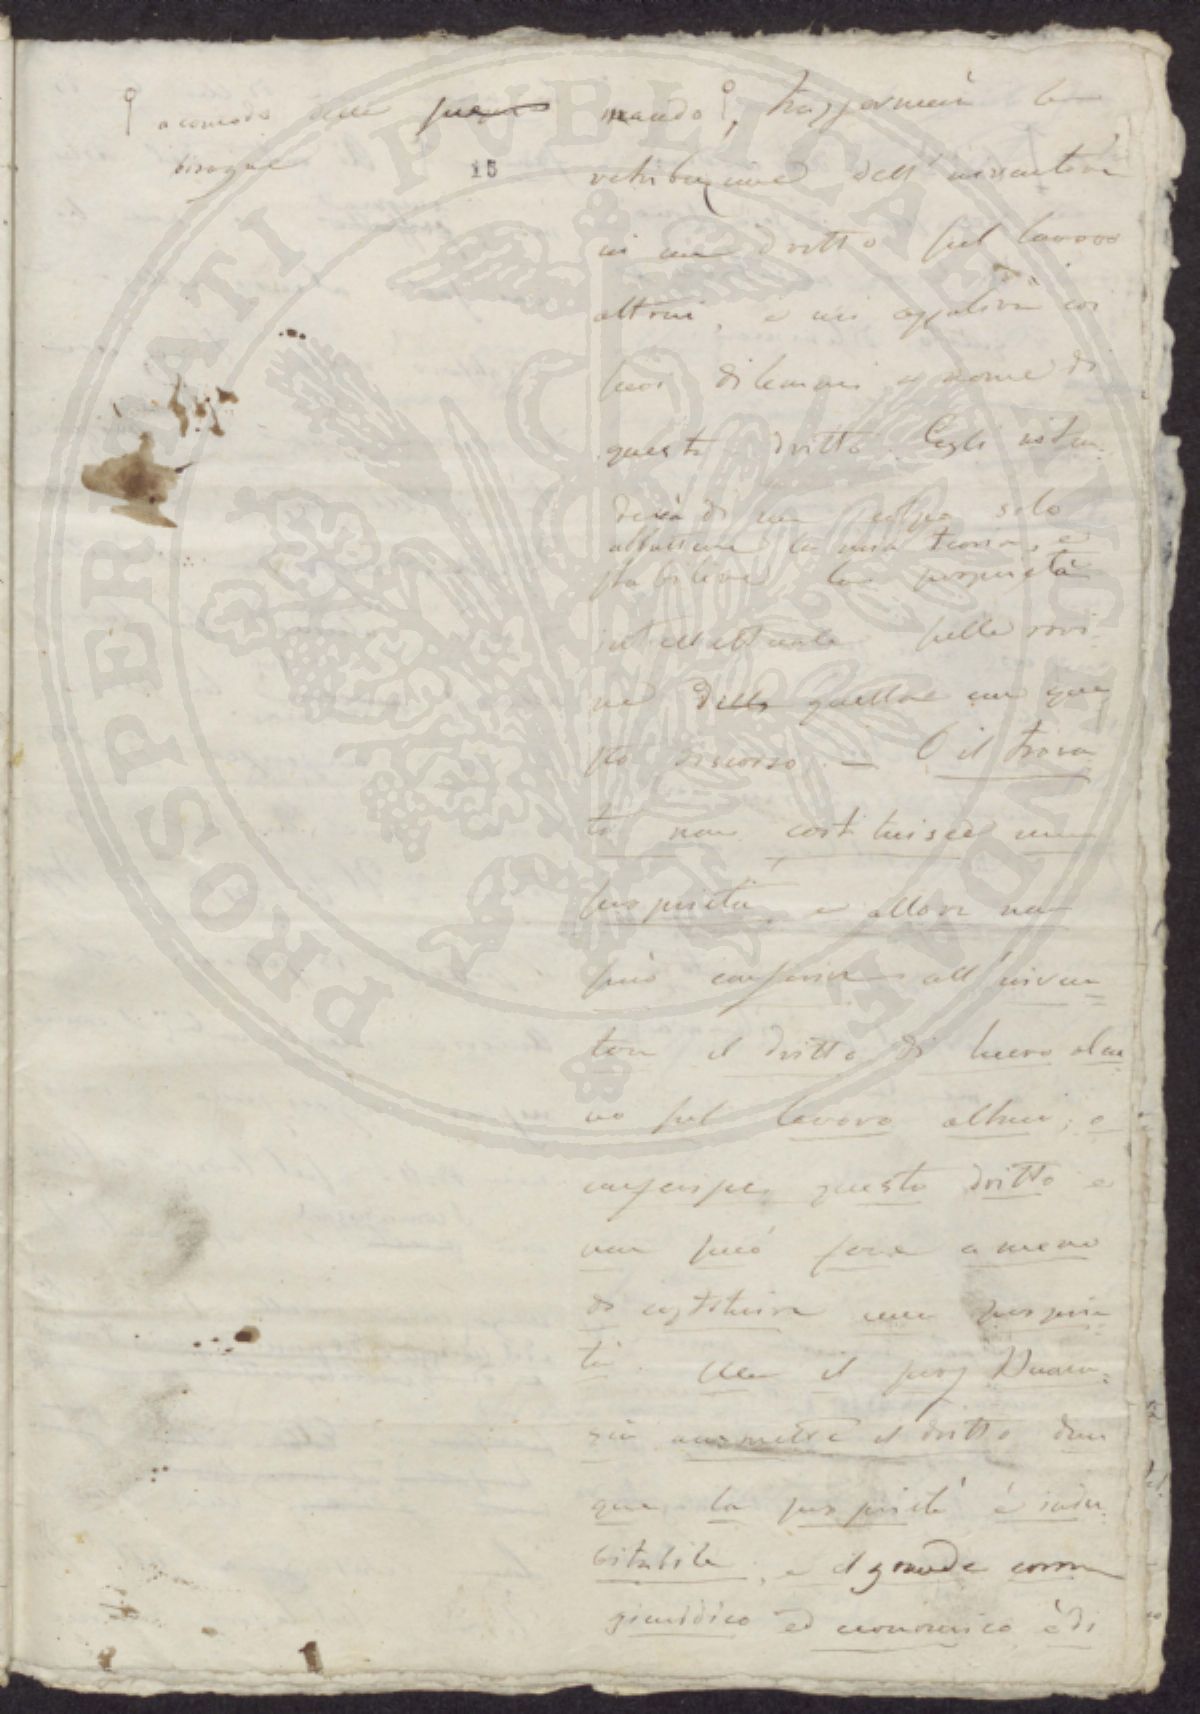 a comodo delle sue
bisogne
15
mando, trasformerà la
retribuzione dell'inventore
in un dritto sul lavoro
altrui, e mi
suoi dilemmi a nome di
questo dritto. Egli inten-
derà di un colpo solo
abbattere la mia teoria, e
stabilire la proprietà
intellettuale sulle rovi-
ne della quella con que
sto discorso. — O il trova
to non costituisce una
proprietà, e allora non
può conferire all'inven-
tore il dritto di lucro alcu
no sul lavoro altrui; o
conferisce questo dritto e
non può fare a meno
di costituire una proprie
tà. Ma il prof
ammette il dritto dun
que la proprietà è indu-
bitabile, e il grande errore
giuridico ed economico è di
PROSPERITATI PVBLICAE AVGENDAE